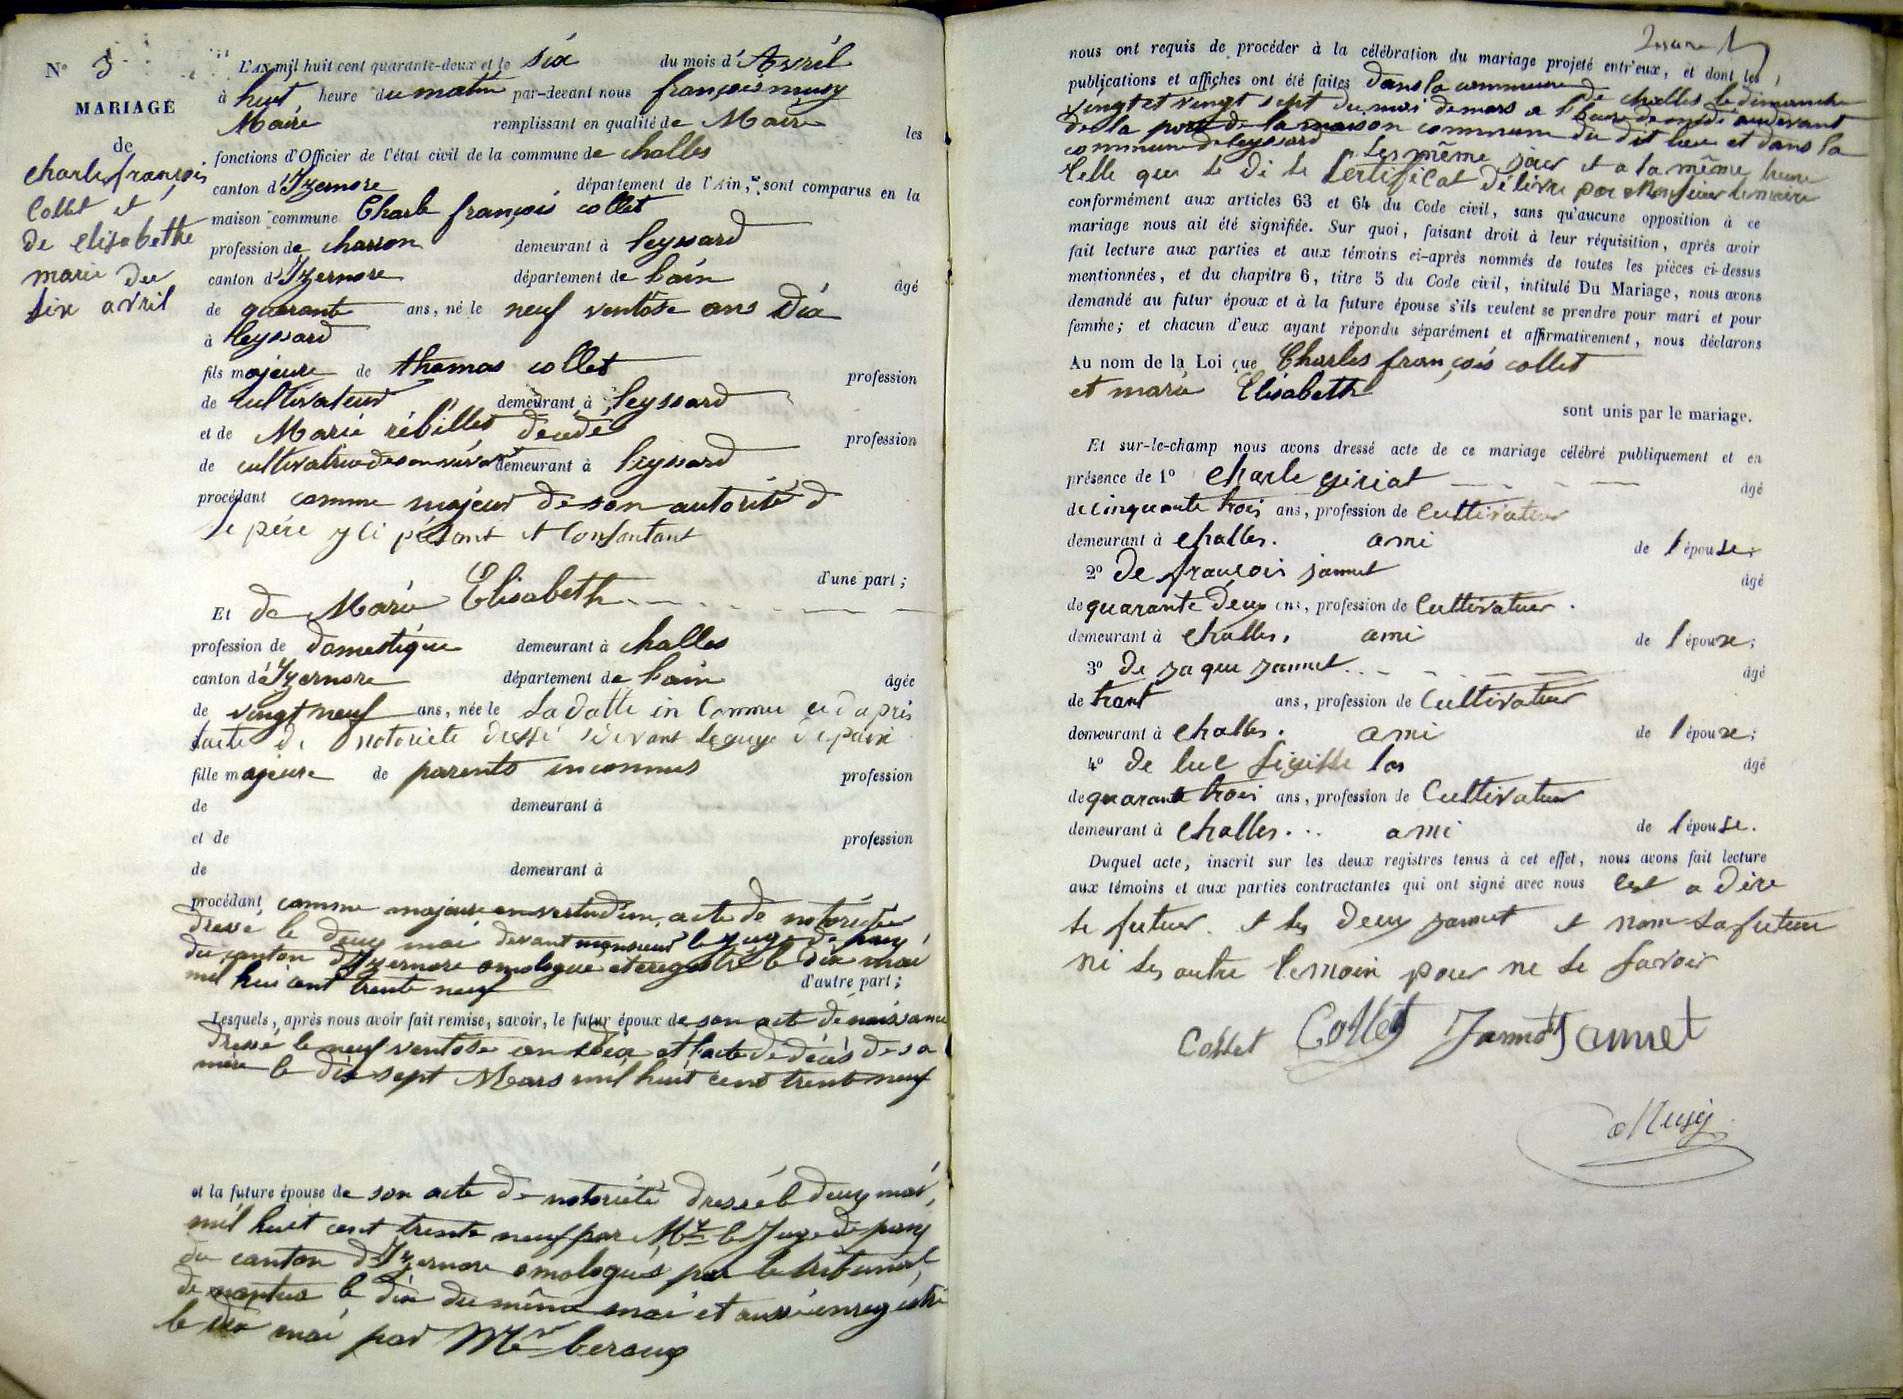 N° 3
MARIAGE
de
charle françois
Collet et
de elisabethe
marie du
six avril
L'AN mil huit cent quarante-deux et le six du mois d'Avril
à huit heure du matin par-devant nous françois musy
Maire remplissant en qualité de Maire les
fonctions d'Officier de l'état civil de la commune de challes
canton d'Izernore département de l'Ain, sont comparus en la
maison commune Charle françois collet
profession de charron demeurant à leyssard
canton d'Izernore département de lain âgé
de quarante ans, né le neuf ventose ans dix
à leyssard
fils majeure de thomas collet profession
de cultivateur demeurant à leyssard
et de Marie rébillet décédé profession
de cultivatrice de son vivant demeurant à leyssard
procédant comme majeur de son autorité d
le père y ci présant et Consantant
d'une part;
Et de Marie Elisabeth
profession de domestique demeurant à challes
canton d'Izernore département de lain âgée
de vingt neuf ans, née le La datte in Connue
lacte de notoriété dressé devant le juge de paix
fille majeure de parents inconnus profession
de demeurant à
et de profession
de demeurant à
procédant comme majeure en vertu d'un acte de notoriété
dressé le deux mai devant monsieur le juge de paix
du canton d'Izernore omologué et eregistré le dix mai
mil huit cent trente neuf d'autre part;
Lesquels, après nous avoir fait remise, savoir, le futur époux de son acte de naissance
dressé le neuf ventose an dix et lacte de décès de sa
mère le dix sept Mars mil huit cent trente neuf
et la future épouse de son acte de notoriété dressé le deux mai,
mil huit cent trente neuf par Mr le Juge de paix
du canton d'Izernore omologués par le tribunal
de nantua le dix du même mai et aussi enregistré
le dix mai par Mr
nous ont requis de procéder à la célébration du mariage projeté entr'eux, et dont les
publications et affiches ont été faites dans la commune de challes le dimanche
vingt et vingt sept du mois de mars a l'heure de midi audevant
de la porte de la maison commune du dit lieu et dans la
commune de leyssard Les même jour et a la même heure
Telle que le di le Certificat délivré par Monsieur le maire
conformément aux articles 63 et 64 du Code civil, sans qu'aucune opposition à ce
mariage nous ait été signifiée. Sur quoi, faisant droit à leur réquisition, après avoir
fait lecture aux parties et aux témoins ci-après nommés de toutes les pièces ci-dessus
mentionnées, et du chapitre 6, titre 5 du Code civil, intitulé Du Mariage, nous avons
demandé au futur époux et à la future épouse s'ils veulent se prendre pour mari et pour
femme; et chacun d'eux ayant répondu séparément et affirmativement, nous déclarons
Au nom de la Loi que Charles françois collet
et marie Elisabeth
sont unis par le mariage.
Et sur-le-champ nous avons dressé acte de ce mariage célébré publiquement et en
présence de 1° charle giriat âgé
de cinquante trois ans, profession de Cultivateur
demeurant à challes. ami de l'épouse.
2° de françois jamet âgé
de quarante deux ans, profession de Cultivateur.
demeurant à challes, ami de l'épouse;
3° de jaque jamet âgé
de trant ans, profession de Cultivateur
demeurant à challes. ami de l'épouse;
4° de luc âgé
de quarante trois ans, profession de Cultivateur
demeurant à challes... ami de l'épouse.
Duquel acte, inscrit sur les deux registres tenus à cet effet, nous avons fait lecture
aux témoins et aux parties contractantes qui ont signé avec nous Cest a dire
le futur. et les deux jamet et nom la future
ni les autre temoin pour ne le savoir
Collet Collet Jamet Jamet
Musy